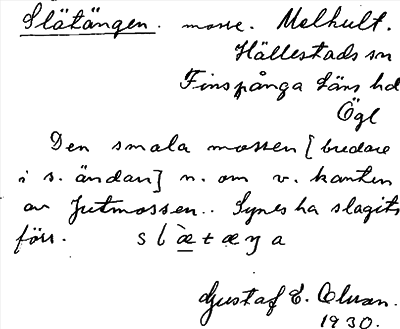 Slätängen. mosse. Melhult.
Hällestads sn
Finspånga läns hd
Ögl
Den smala mossen [bredare
i s. ändan] n. om v. kanten
av Jutmossen.. Synes ha slagits
förr. slæ̀tæŋa
Gustaf E.
1930.